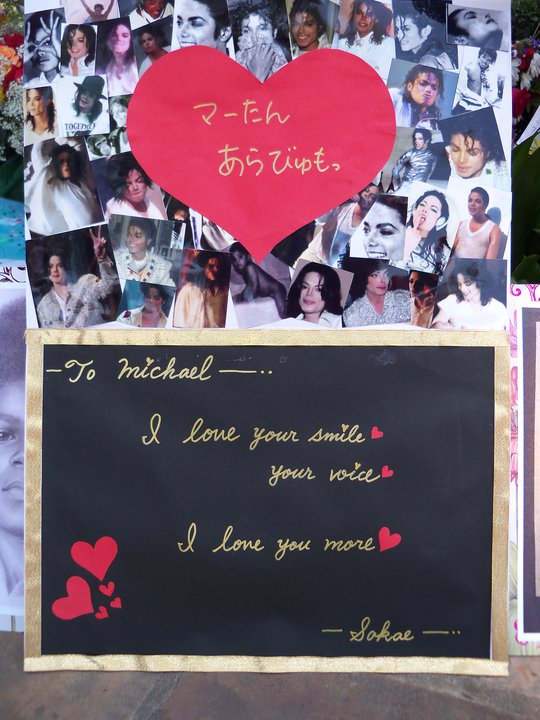 マーたん
あらびゅもっ
TOGETHER
-To Michael-..
I love your smile
your voice
I love you more
-Sakae-..